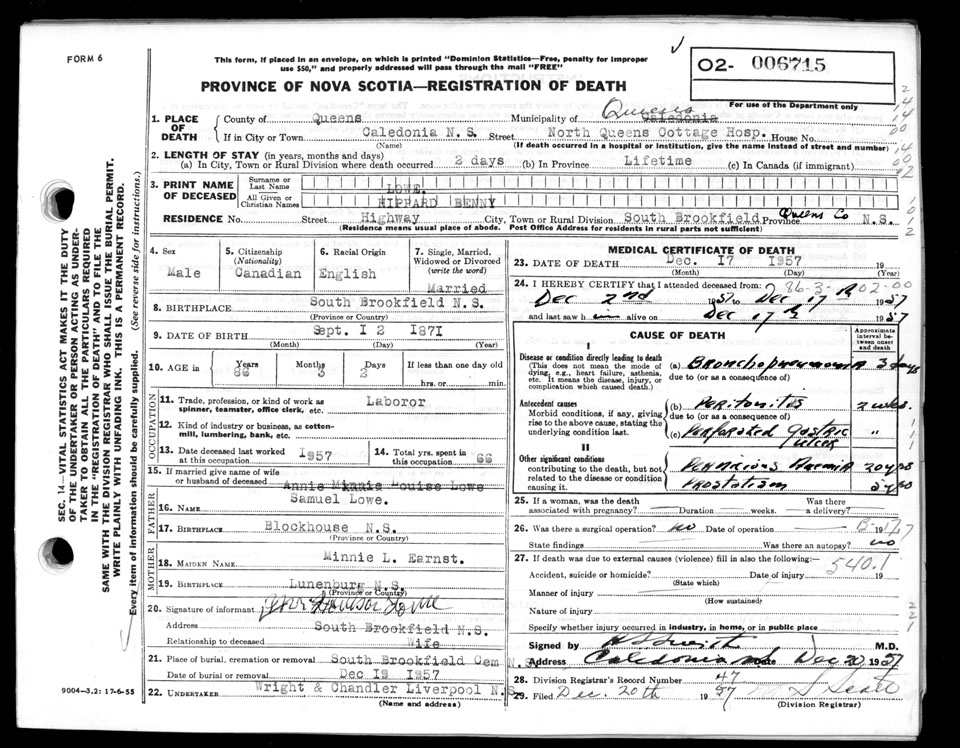 FORM 6
This form, if placed in an envelope, on which is printed "Dominion Statistics—Free, penalty for improper
use $50," and properly addressed will pass through the mail "FREE"
O2- 006715
For use of the Department only
PROVINCE OF NOVA SCOTIA—REGISTRATION OF DEATH
1. PLACE OF DEATH
County of Queens Municipality of Caledonia Queens
If in City or Town Caledonia N.S. Street North Queens Cottage Hosp. House No.
(Name) (If death occurred in a hospital or institution, give the name instead of street and number)
2. LENGTH OF STAY (in years, months and days)
(a) In City, Town or Rural Division where death occurred 2 days (b) In Province Lifetime (c) In Canada (if immigrant)
3. PRINT NAME OF DECEASED
Surname or Last Name LOWE.
All Given or Christian Names HIPPARD BENNY
RESIDENCE No. Street Highway City, Town or Rural Division South Brookfield Province Queens Co N.S.
(Residence means usual place of abode. Post Office Address for residents in rural parts not sufficient)
4. Sex Male
5. Citizenship (Nationality) Canadian
6. Racial Origin English
7. Single, Married, Widowed or Divorced (write the word) Married
8. BIRTHPLACE South Brookfield N.S.
(Province or Country)
9. DATE OF BIRTH Sept. I 2 I87I
(Month) (Day) (Year)
10. AGE in Years 86 Months 3 Days 2 If less than one day old
hrs. or min.
OCCUPATION
11. Trade, profession, or kind of work as spinner, teamster, office clerk, etc. Laboror
12. Kind of industry or business, as cotton-mill, lumbering, bank, etc.
13. Date deceased last worked at this occupation I957
14. Total yrs. spent in this occupation 66
15. If married give name of wife or husband of deceased Annie Minnie Louise Lowe
FATHER
16. NAME Samuel Lowe.
17. BIRTHPLACE Blockhouse N.S.
(Province or Country)
MOTHER
18. MAIDEN NAME Minnie L. Earnst.
19. BIRTHPLACE Lunenburg N.S.
(Province or Country)
20. Signature of informant
Address South Brookfield N.S.
Relationship to deceased Wife
21. Place of burial, cremation or removal South Brookfield Cem N.S.
Date of burial or removal Dec I9 I957
22. UNDERTAKER Wright & Chandler Liverpool N.S.
(Name and address)
9004—3.2: 17-6-55
SEC. 14—VITAL STATISTICS ACT MAKES IT THE DUTY
OF THE UNDERTAKER OR PERSON ACTING AS UNDER-
TAKER TO OBTAIN ALL THE PARTICULARS REQUIRED
IN THE "REGISTRATION OF DEATH" AND TO FILE THE
SAME WITH THE DIVISION REGISTRAR WHO SHALL ISSUE THE BURIAL PERMIT.
WRITE PLAINLY WITH UNFADING INK. THIS IS A PERMANENT RECORD.
Every item of information should be carefully supplied. (See reverse side for instructions.)
MEDICAL CERTIFICATE OF DEATH
23. DATE OF DEATH Dec. I7 I957 19
(Month) (Day) (Year)
24. I HEREBY CERTIFY that I attended deceased from:
Dec 2nd 1957 to Dec 17th 1957
and last saw him alive on Dec 17th 1957
CAUSE OF DEATH
Approximate interval between onset and death
I
Disease or condition directly leading to death
(This does not mean the mode of dying, e.g., heart failure, asthenia, etc. It means the disease, injury, or complication which caused death.)
(a) Bronchopneumonia 3 days
due to (or as a consequence of)
Antecedent causes
Morbid conditions, if any, giving rise to the above cause, stating the underlying condition last.
(b) Peritonitis 2 wks.
due to (or as a consequence of)
(c) Perforated Gastric Ulcer "
II
Other significant conditions
contributing to the death, but not related to the disease or condition causing it.
Pernicious Anemia 20 yrs
Prostatism
25. If a woman, was the death associated with pregnancy? Duration weeks. Was there a delivery?
26. Was there a surgical operation? no Date of operation 19
State findings Was there an autopsy? no
27. If death was due to external causes (violence) fill in also the following:
540.1
Accident, suicide or homicide? Date of injury 19
(State which)
Manner of injury
(How sustained)
Nature of injury
Specify whether injury occurred in industry, in home, or in public place
Signed by M.D.
Address Caledonia NS Date Dec 20, 1957
28. Division Registrar's Record Number 47
29. Filed Dec. 20th 1957
(Division Registrar)